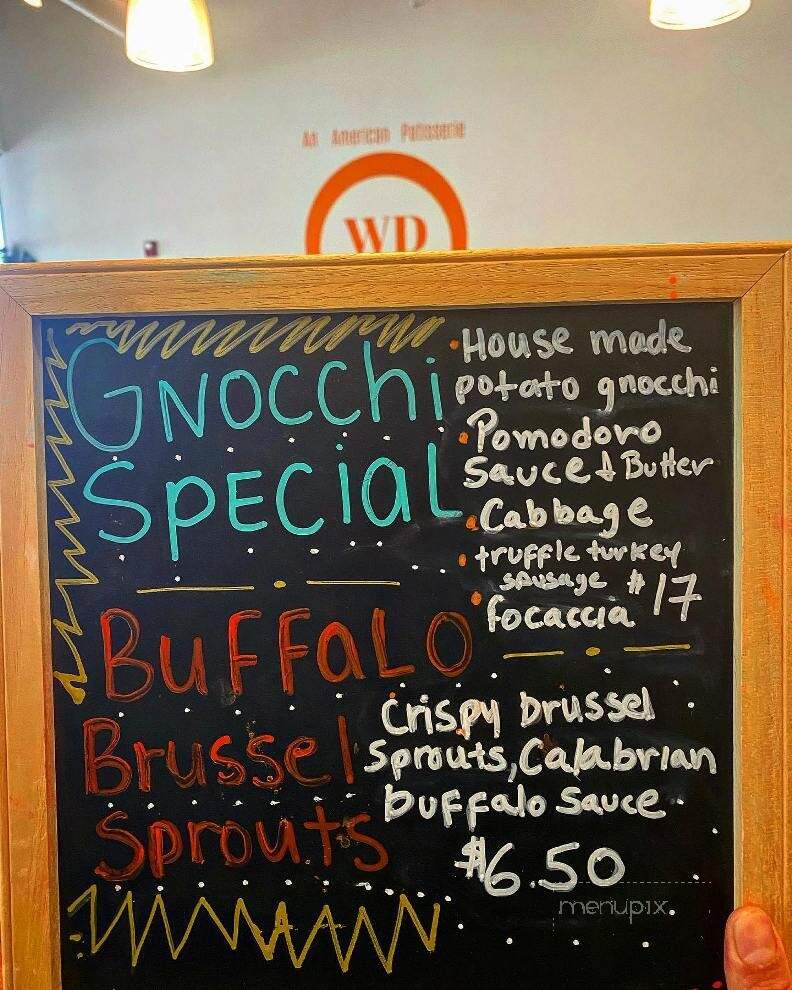 An American Patisserie
WD
GNOCCHi
SPECiaL
• House made
potato gnocchi
• Pomodoro
Sauce & Butter
• Cabbage
• truffle turkey
sausage $17
• focaccia
BUFFaLO
Brussel
Sprouts
Crispy brussel
Sprouts, Calabrian
buffalo sauce
$6.50
menupix